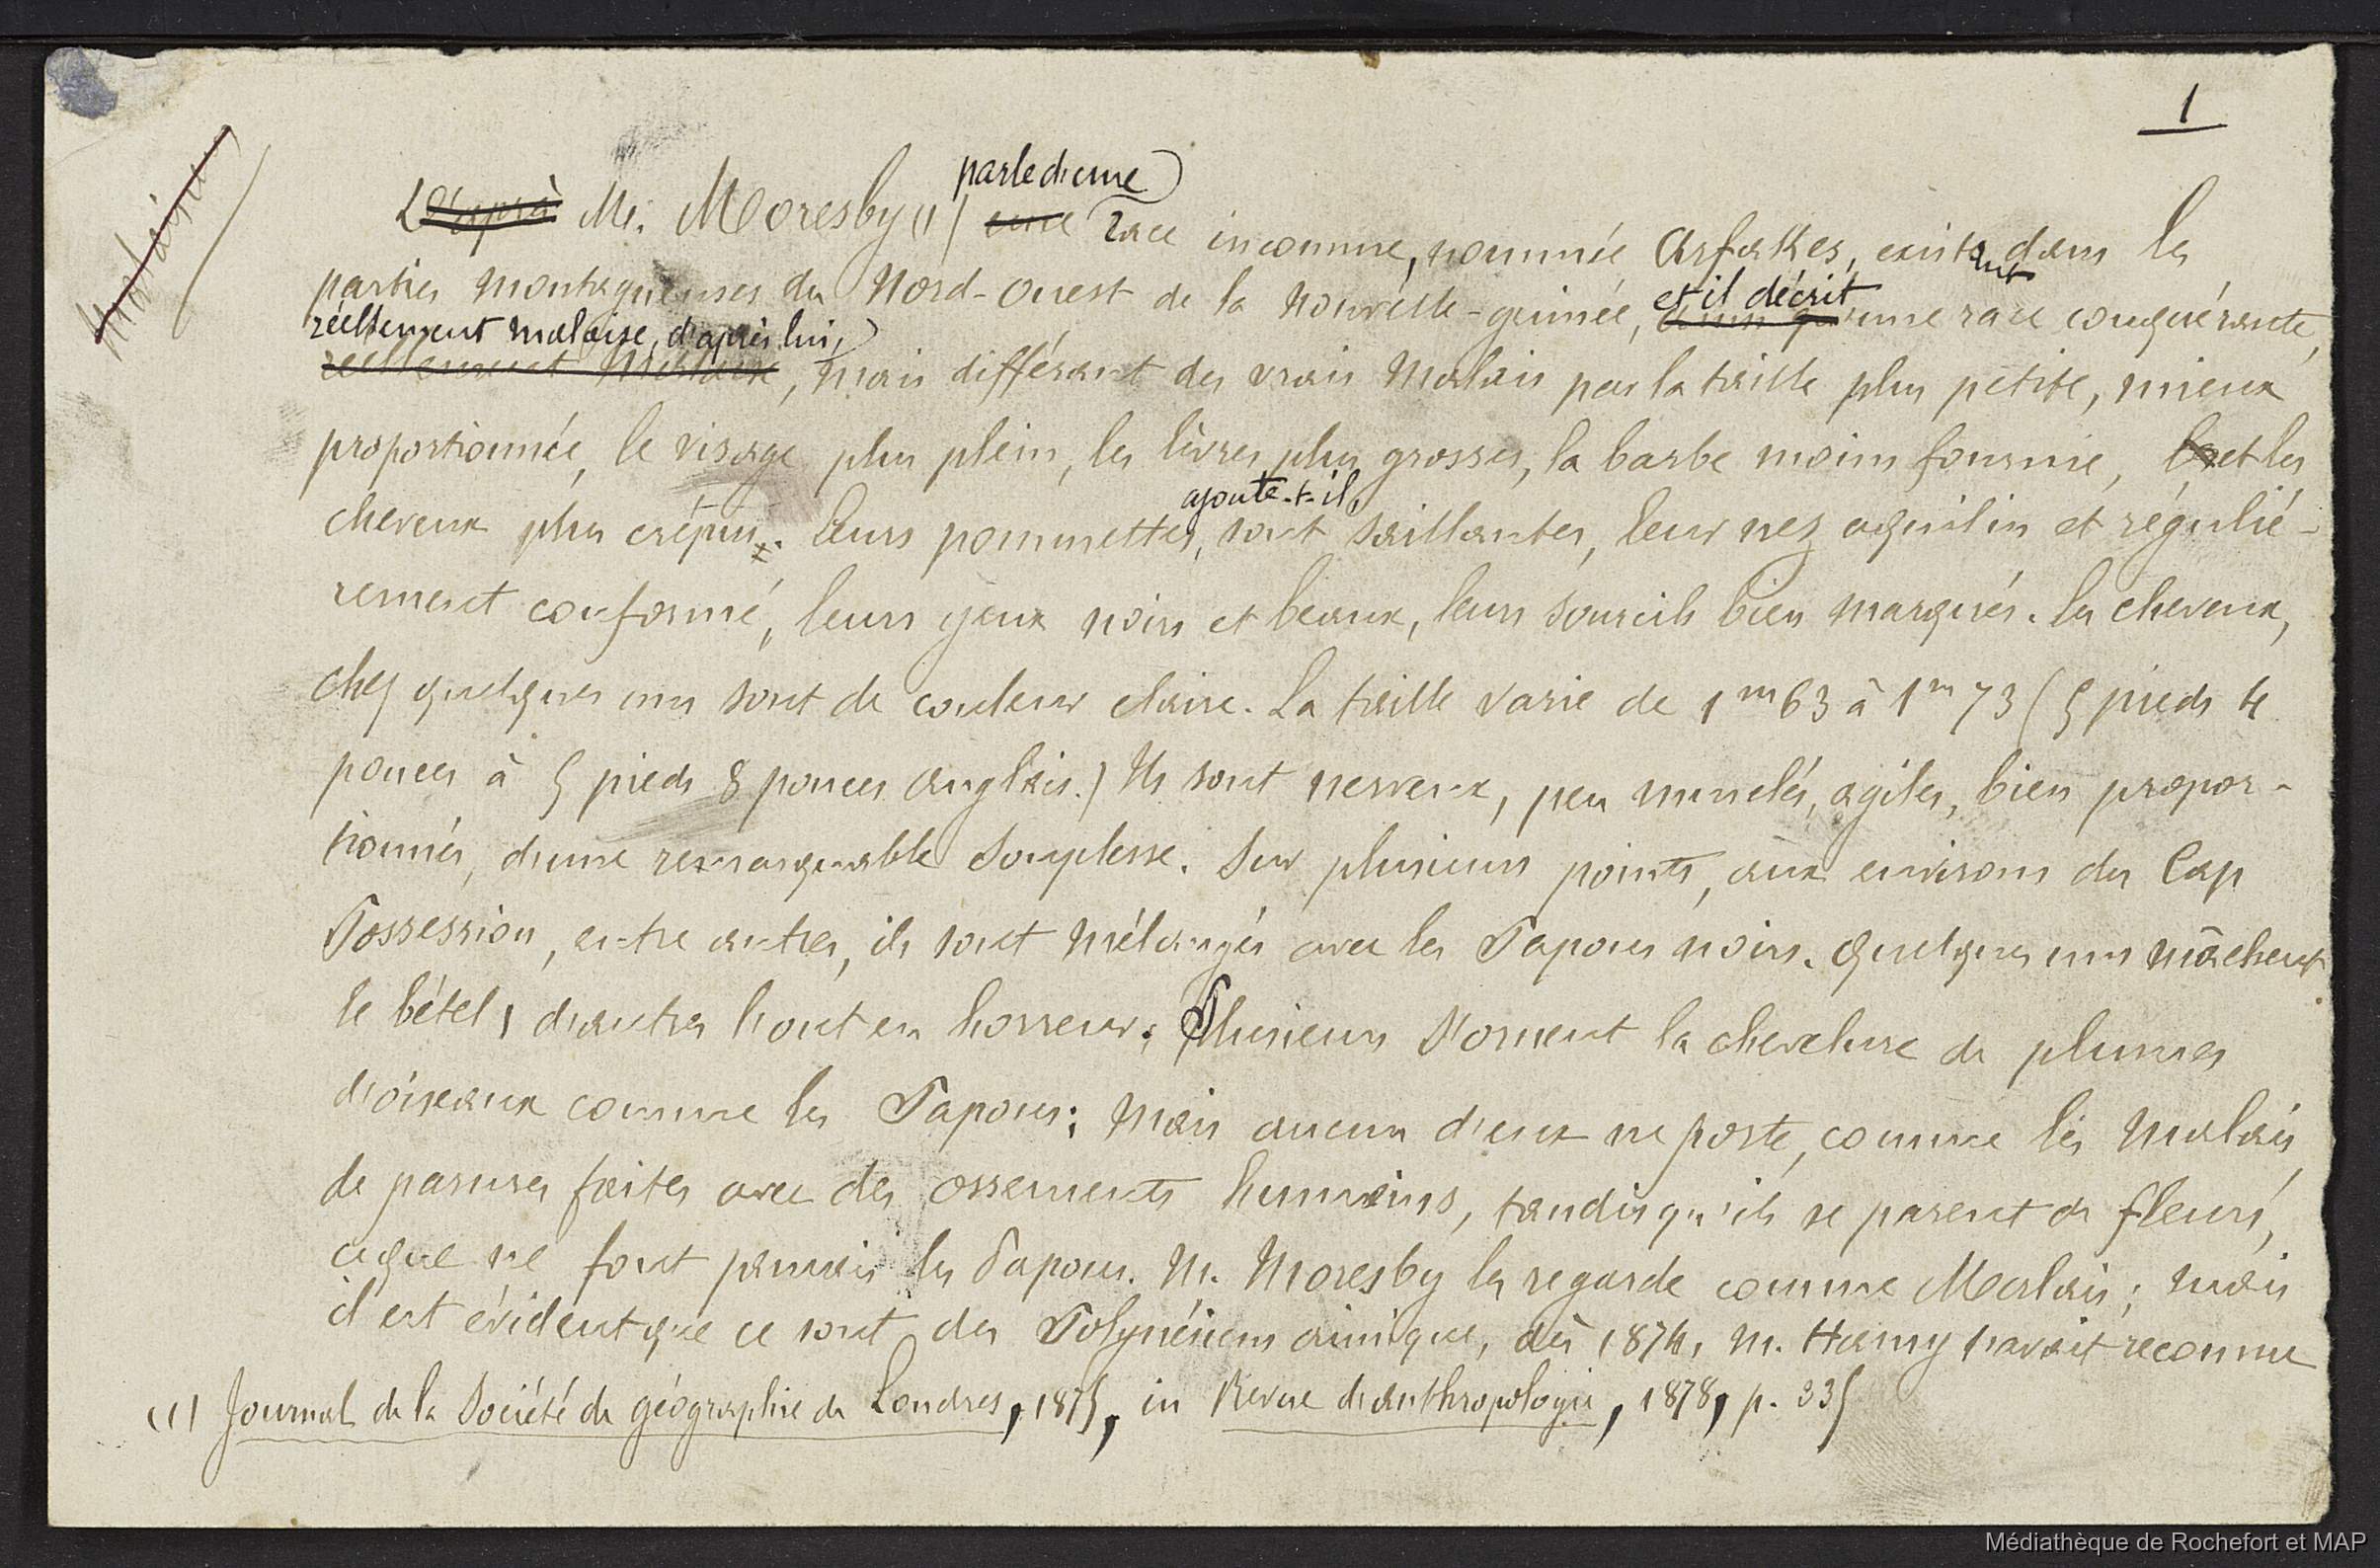 1
Malaisie
D'après M. Moresby (1) parle d'une une race inconnue, nommée Arfakes, existant dans les
parties montagneuses du Nord-Ouest de la Nouvelle-guinée, et il décrit ainsi qu'une race conquérante,
réellement malaise, d'après lui,
réellement malaise, mais différant des vrais Malais par la taille plus petite, mieux
proportionnée, le visage plus plein, les lèvres plus grosses, la barbe moins fournie, et les
cheveux plus crépus. Leurs pommettes, ajoute-t-il, sont saillantes, leur nez aquilin et réguliè-
rement conformé, leurs yeux noirs et beaux, leurs sourcils bien marqués. les cheveux,
chez quelques uns sont de couleur claire. La taille varie de 1m63 à 1m73 (5 pieds 4
pouces à 5 pieds 8 pouces anglais.) Ils sont nerveux, peu musclés, agiles, bien propor-
tionnés, d'une remarquable souplesse. Sur plusieurs points, aux environs du Cap
Possession, entre autres, ils sont mélangés avec les Papous noirs. Quelques uns mâchent
le bétel, d'autres l'ont en horreur; Plusieurs s'ornent la chevelure de plumes
d'oiseaux comme les Papous; mais aucun d'eux ne porte, comme les Malais,
de parures faites avec des ossements humains, tandis qu'ils se parent de fleurs,
ce que ne font jamais les Papous. M. Moresby les regarde comme Malais; mais
il est évident que ce sont des Polynésiens ainsi que, dès 1874, M. Hamy l'avait reconnu
(1) Journal de la Société de géographie de Londres, 1875, in Revue d'anthropologie, 1878, p. 335
Médiathèque de Rochefort et MAP